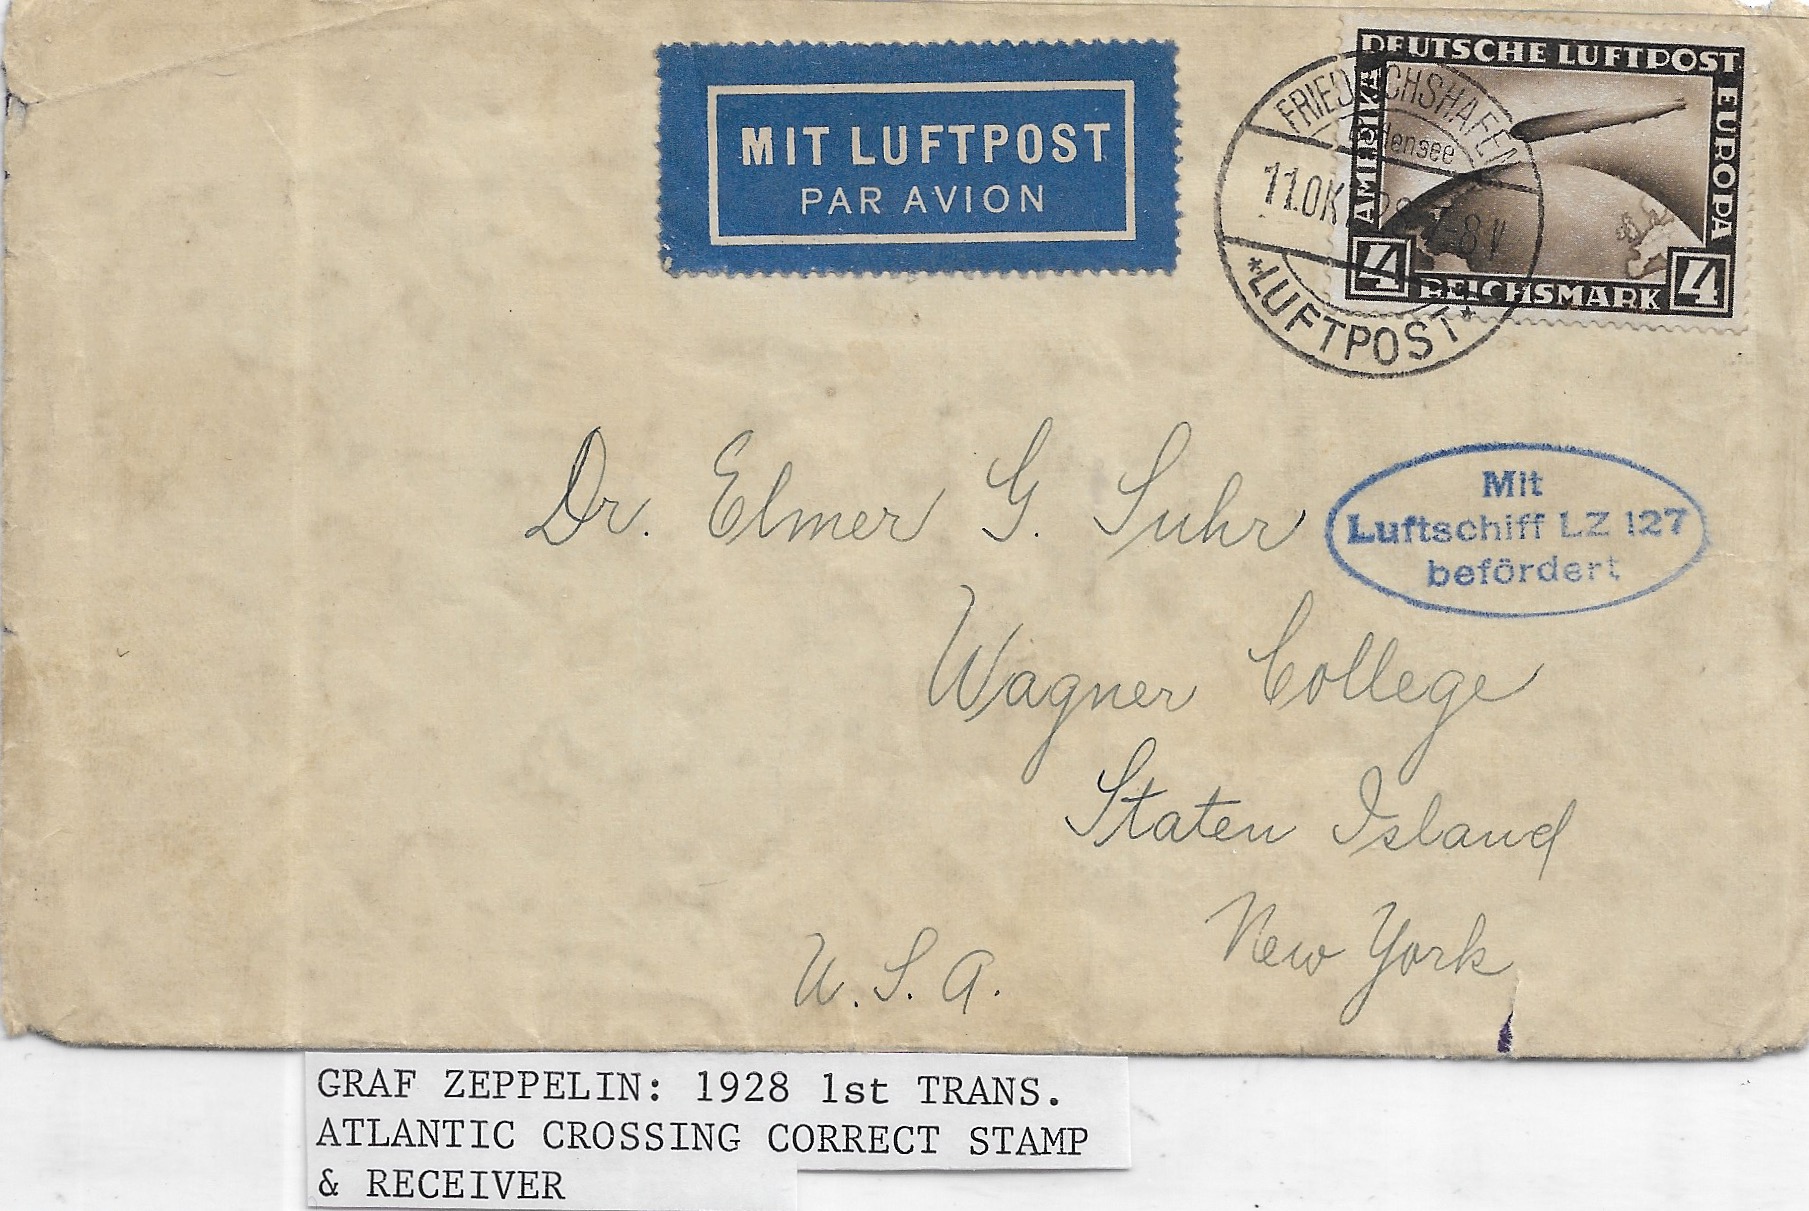 MIT LUFTPOST
PAR AVION
DEUTSCHE LUFTPOST
AMERIKA
EUROPA
4 REICHSMARK 4
FRIEDRICHSHAFEN
Bodensee
11.OKT.28.7-8V
*LUFTPOST*
Dr. Elmer G. Suhr
Mit
Luftschiff LZ 127
befördert
Wagner College
Staten Island
New York
U. S. A.
GRAF ZEPPELIN: 1928 1st TRANS.
ATLANTIC CROSSING CORRECT STAMP
& RECEIVER